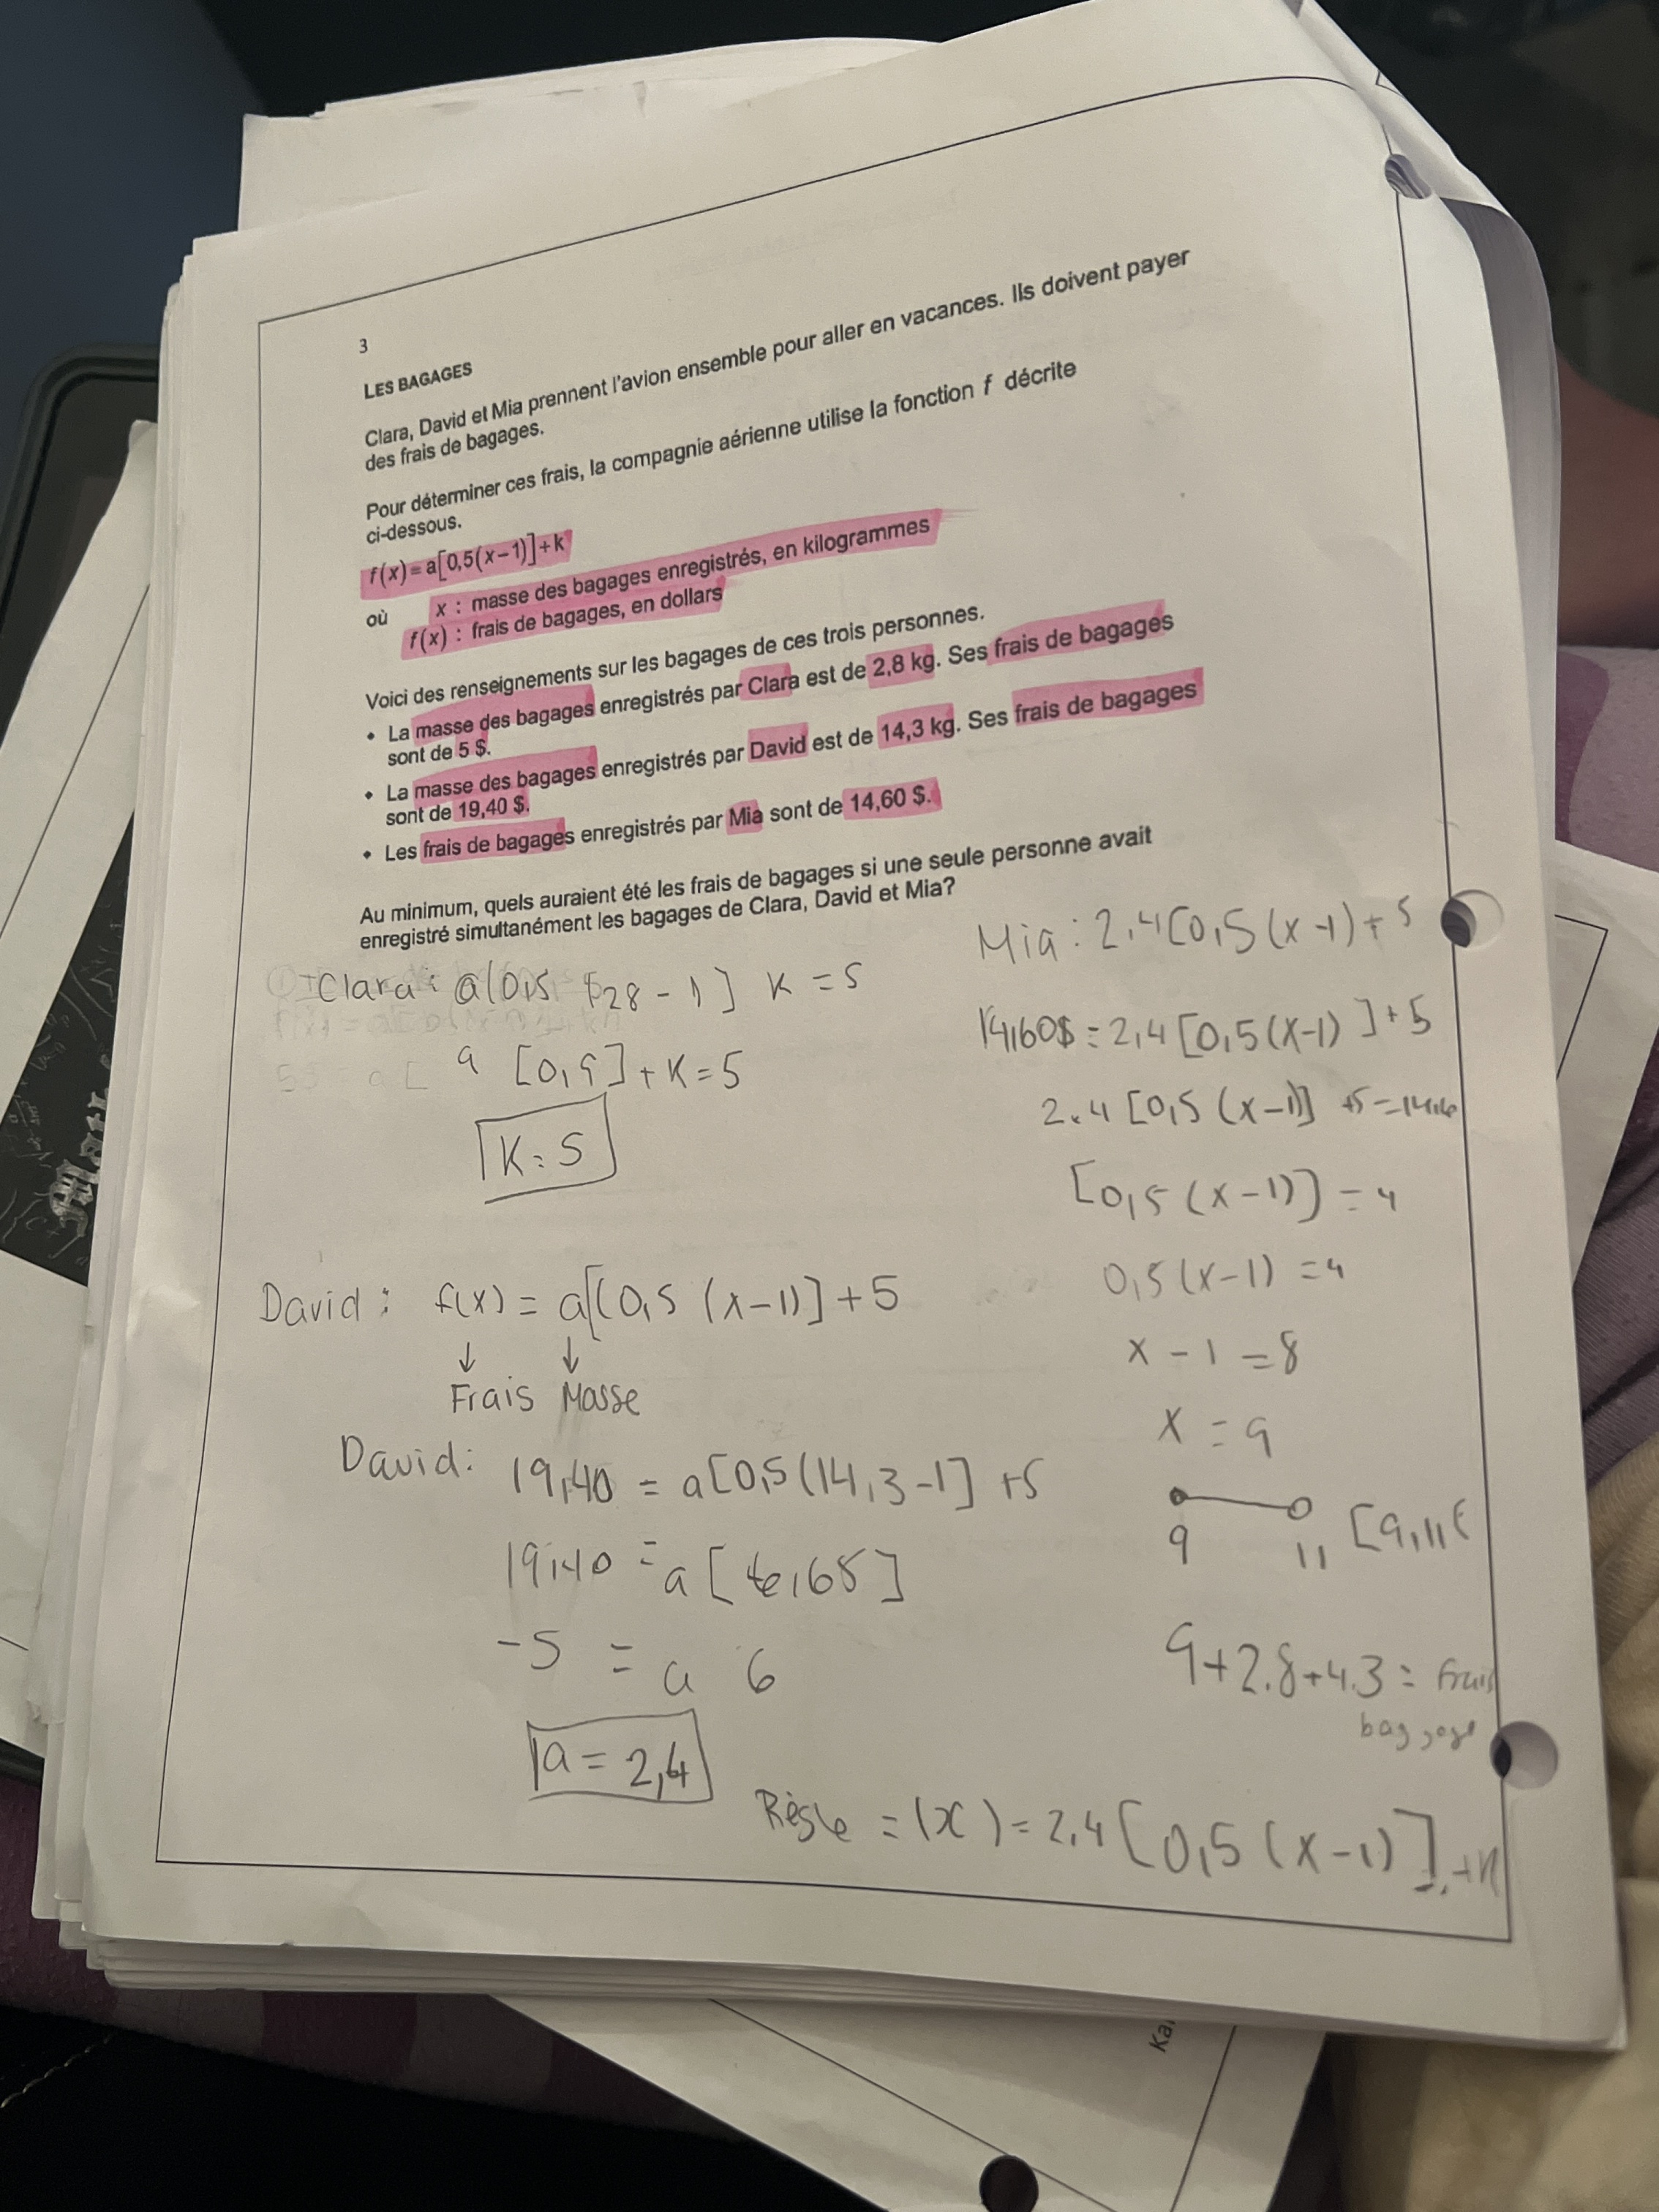 3
LES BAGAGES
Clara, David et Mia prennent l'avion ensemble pour aller en vacances. Ils doivent payer
des frais de bagages.
Pour déterminer ces frais, la compagnie aérienne utilise la fonction f décrite
ci-dessous.
f(x)=a[0,5(x−1)]+k
où x : masse des bagages enregistrés, en kilogrammes
f(x) : frais de bagages, en dollars
Voici des renseignements sur les bagages de ces trois personnes.
• La masse des bagages enregistrés par Clara est de 2,8 kg. Ses frais de bagages
sont de 5 $.
• La masse des bagages enregistrés par David est de 14,3 kg. Ses frais de bagages
sont de 19,40 $.
• Les frais de bagages enregistrés par Mia sont de 14,60 $.
Au minimum, quels auraient été les frais de bagages si une seule personne avait
enregistré simultanément les bagages de Clara, David et Mia?
Clara: a(0,5 28 - 1] K = 5
a [0,9] + K = 5
K = 5
David: f(x) = a[(0,5 (x-1)] + 5
↓ ↓
Frais Masse
David: 19,40 = a[0,5(14,3-1] +5
19,40 = a [6,65]
-5 = a 6
a = 2,4
Mia: 2,4[0,5(x-1)+5
14,60$ = 2,4[0,5(x-1)]+5
2.4[0,5(x-1)] +5=14.6
[0,5(x-1)] = 4
0,5(x-1) = 4
x - 1 = 8
x = 9
9 11 [9,11[
9+2.8+4.3 = frais
Règle = (x) = 2,4[0,5(x-1)]
Ka